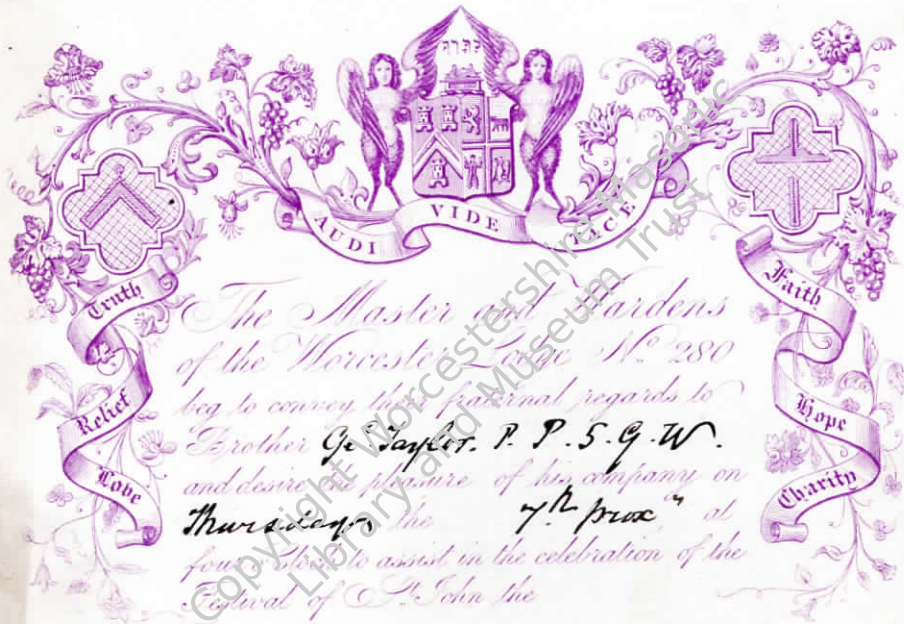 AUDI VIDE TACE
Truth
Relief
Love
Faith
Hope
Charity
The Master and Wardens
of the Worcester Lodge No. 280
beg to convey their fraternal regards to
Brother Geo Taylor. P. P. S. G. W.
and desire the pleasure of his company on
Thursday the 7th prox" at
four o'clock to assist in the celebration of the
Festival of St. John the
Copyright Worcestershire Masonic
Library and Museum Trust